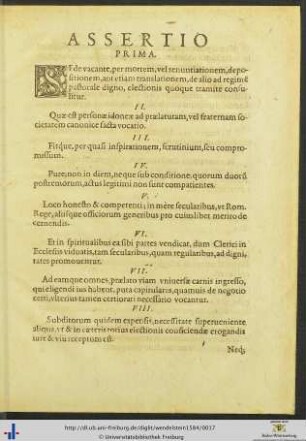 ASSERTIO
PRIMA.
SEde vacante, per mortem, vel renuntiationem, depo-
sitionem, aut etiam translationem, de alio ad regimē
pastorale digno, electionis quoque tramite consu-
litur.
II.
Quæ est personæ idoneæ ad prælaturam, vel fraternam so-
cietatem canonice facta vocatio.
III.
Fitque, per quasi inspirationem, scrutinium, seu compro-
missum.
IV.
Pure, non in diem, neque sub conditione. quorum duorū
postremorum, actus legitimi non sunt compatientes.
V.
Loco honesto & competenti; in mere secularibus, vt Rom.
Rege, aliisque officiorum generibus pro cuiuslibet merito de-
cernendis.
VI.
Et in spiritualibus ea sibi partes vendicat, dum Clerici in
Ecclesiis viduatis, tam secularibus, quam regularibus, ad digni-
tates promouentur.
VII.
Ad eamque omnes, prælato viam vniuersæ carnis ingresso,
qui eligendi ius habent, puta capitulares, quamuis de negocio
certi, vlterius tamen certiorari necessario vocantur.
VIII.
Subditorum quidem expensis, necessitate superueniente
aliqua, vt & in cæteris verius electionis conficiendæ erogandis
iure & viu receptum est.
Neq;
http://dl.ub.uni-freiburg.de/diglit/wendelstein1584/0017
© Universitätsbibliothek Freiburg
Baden-Württemberg